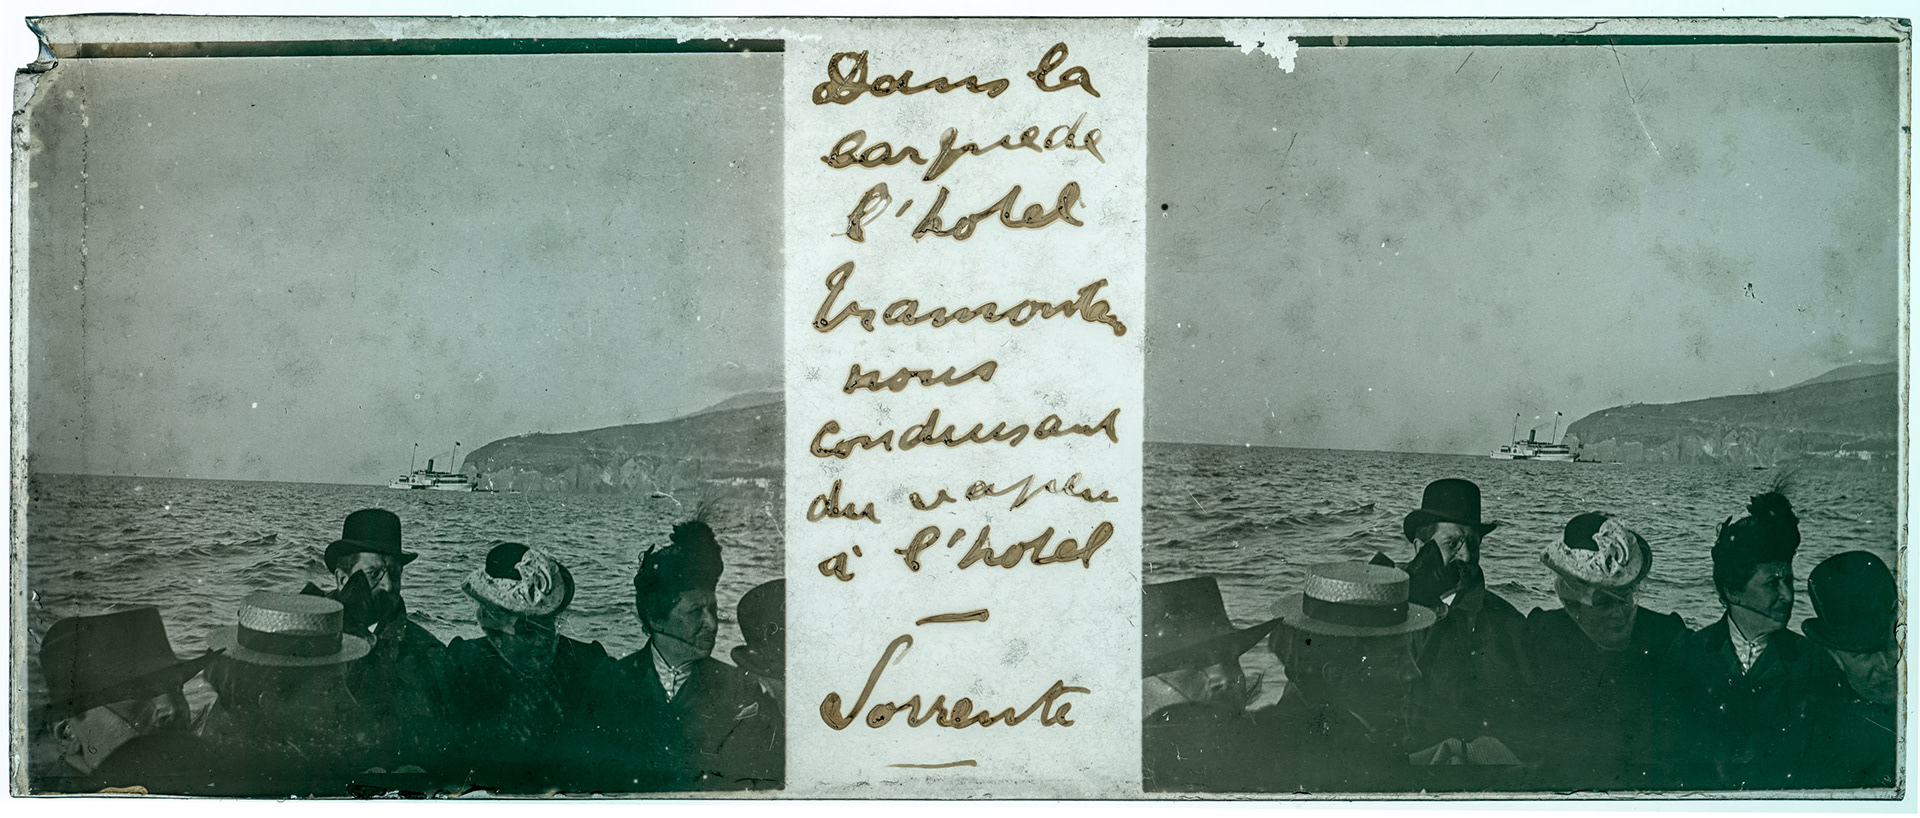 Dans la
barque de
l'hotel
Tramonta
nous
conduisant
du vapeu
à l'hotel
Sorrente